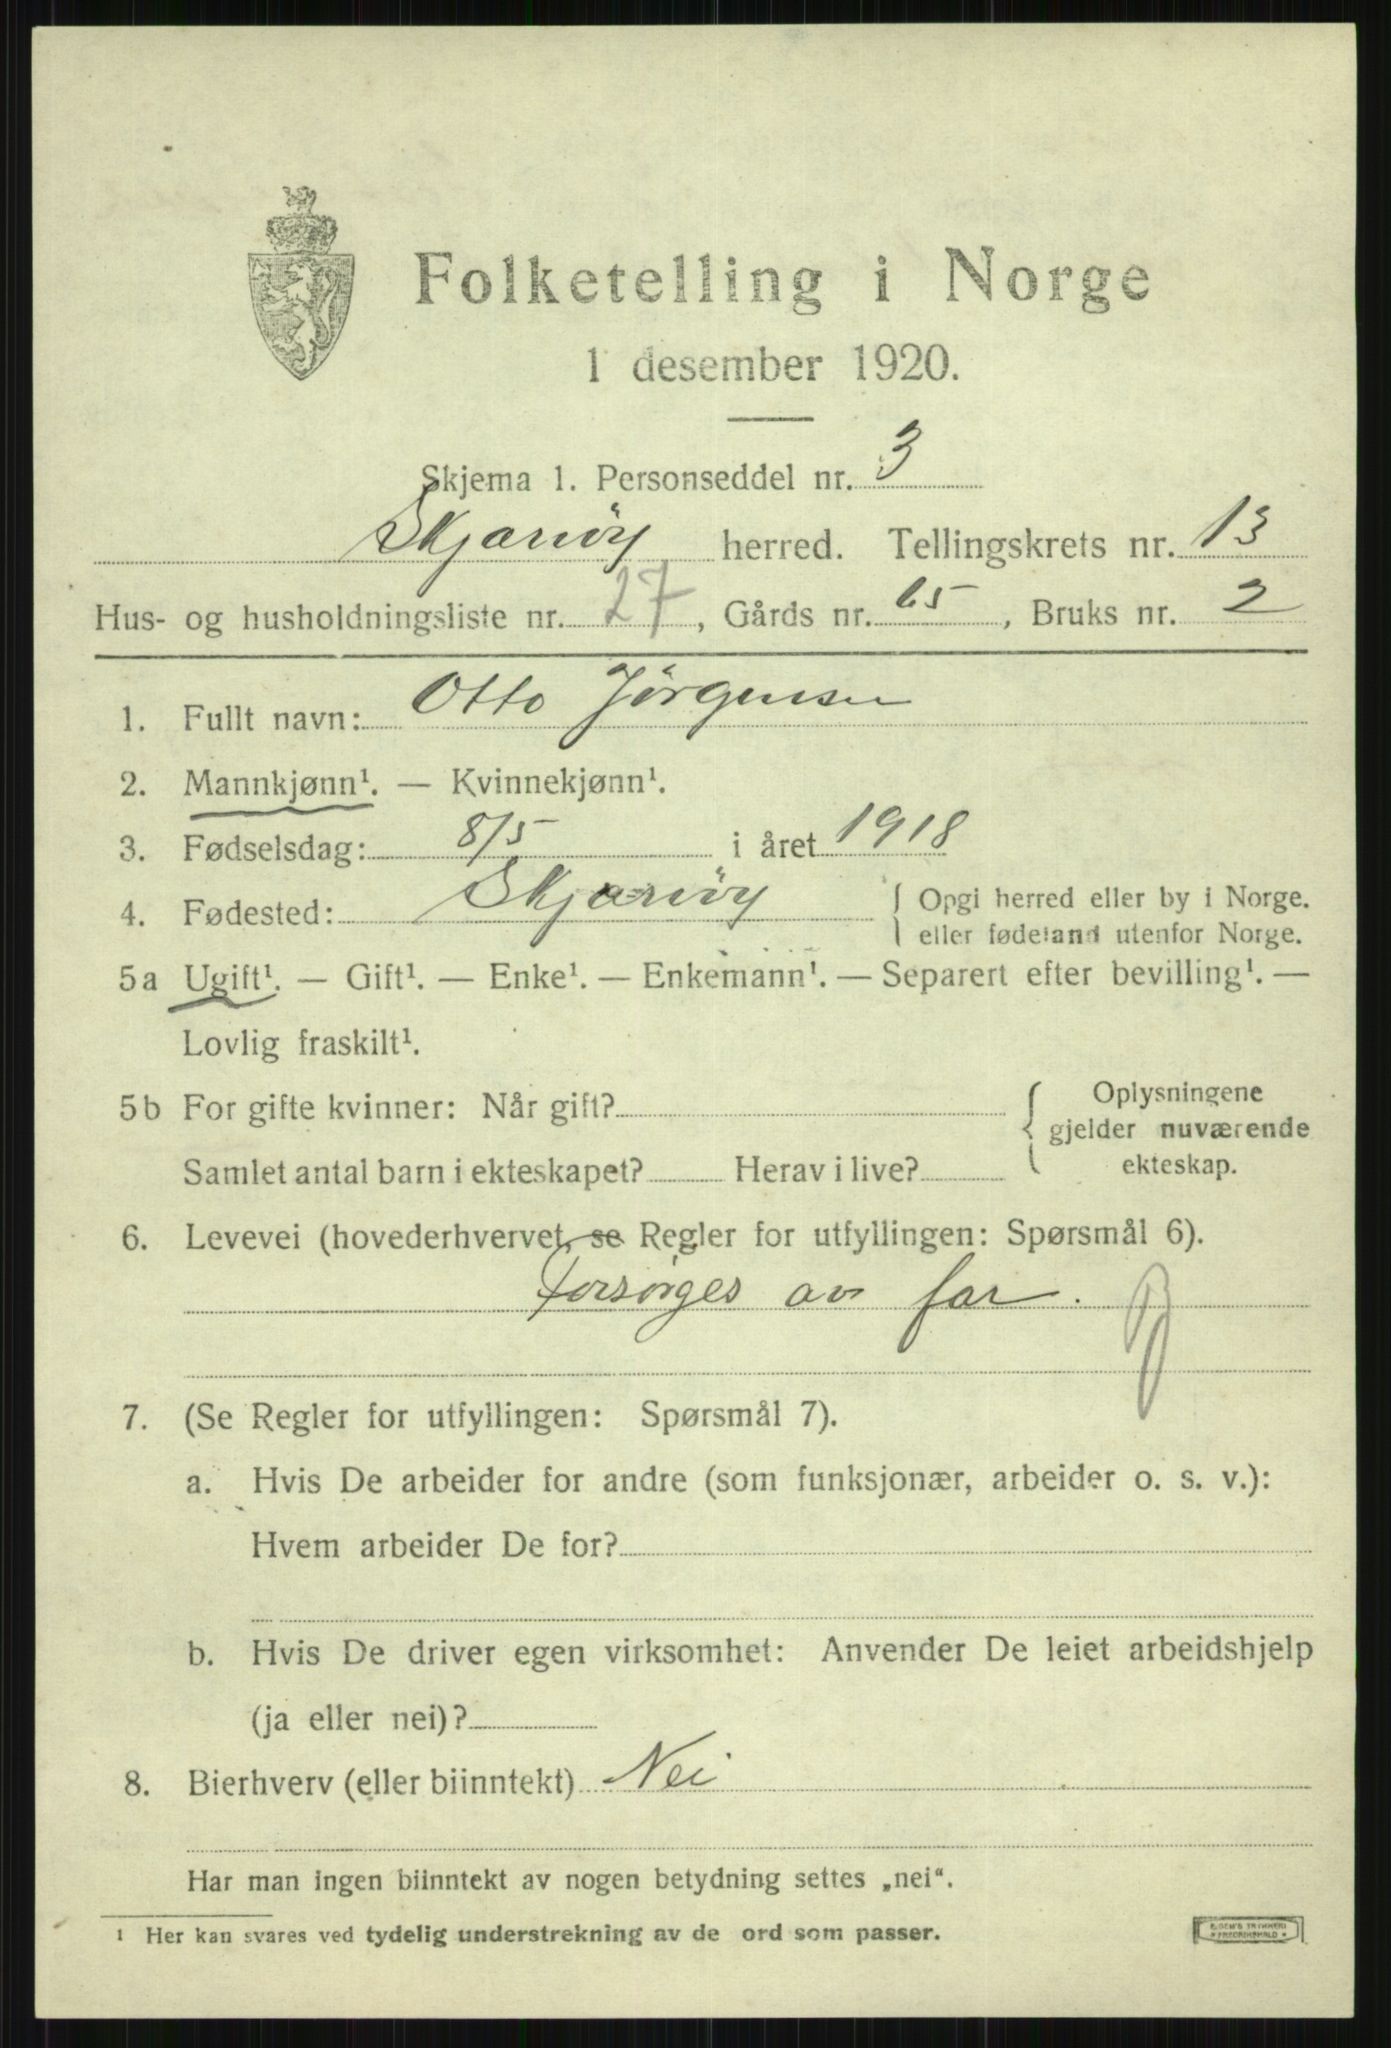 Folketelling i Norge
1 desember 1920.
Skjema 1. Personseddel nr. 3
Skjærvøy herred. Tellingskrets nr. 13
Hus- og husholdningsliste nr. 27, Gårds nr. 65, Bruks nr. 2
1. Fullt navn: Otto Jørgensen
2. Mannkjønn¹. — Kvinnekjønn¹.
3. Fødselsdag: 8/5 i året 1918
4. Fødested: Skjærvøy { Opgi herred eller by i Norge.
eller fødeland utenfor Norge.
5a Ugift¹. — Gift¹. — Enke¹. — Enkemann¹. — Separert efter bevilling¹. —
Lovlig fraskilt¹.
5b For gifte kvinner: Når gift? { Oplysningene
gjelder nuværende
Samlet antal barn i ekteskapet? Herav i live? ekteskap.
6. Levevei (hovederhvervet, se Regler for utfyllingen: Spørsmål 6).
Forsørges av far.
7. (Se Regler for utfyllingen: Spørsmål 7).
a. Hvis De arbeider for andre (som funksjonær, arbeider o. s. v.):
Hvem arbeider De for?
b. Hvis De driver egen virksomhet: Anvender De leiet arbeidshjelp
(ja eller nei)?
8. Bierhverv (eller biinntekt) Nei
Har man ingen biinntekt av nogen betydning settes „nei“.
¹ Her kan svares ved tydelig understrekning av de ord som passer.